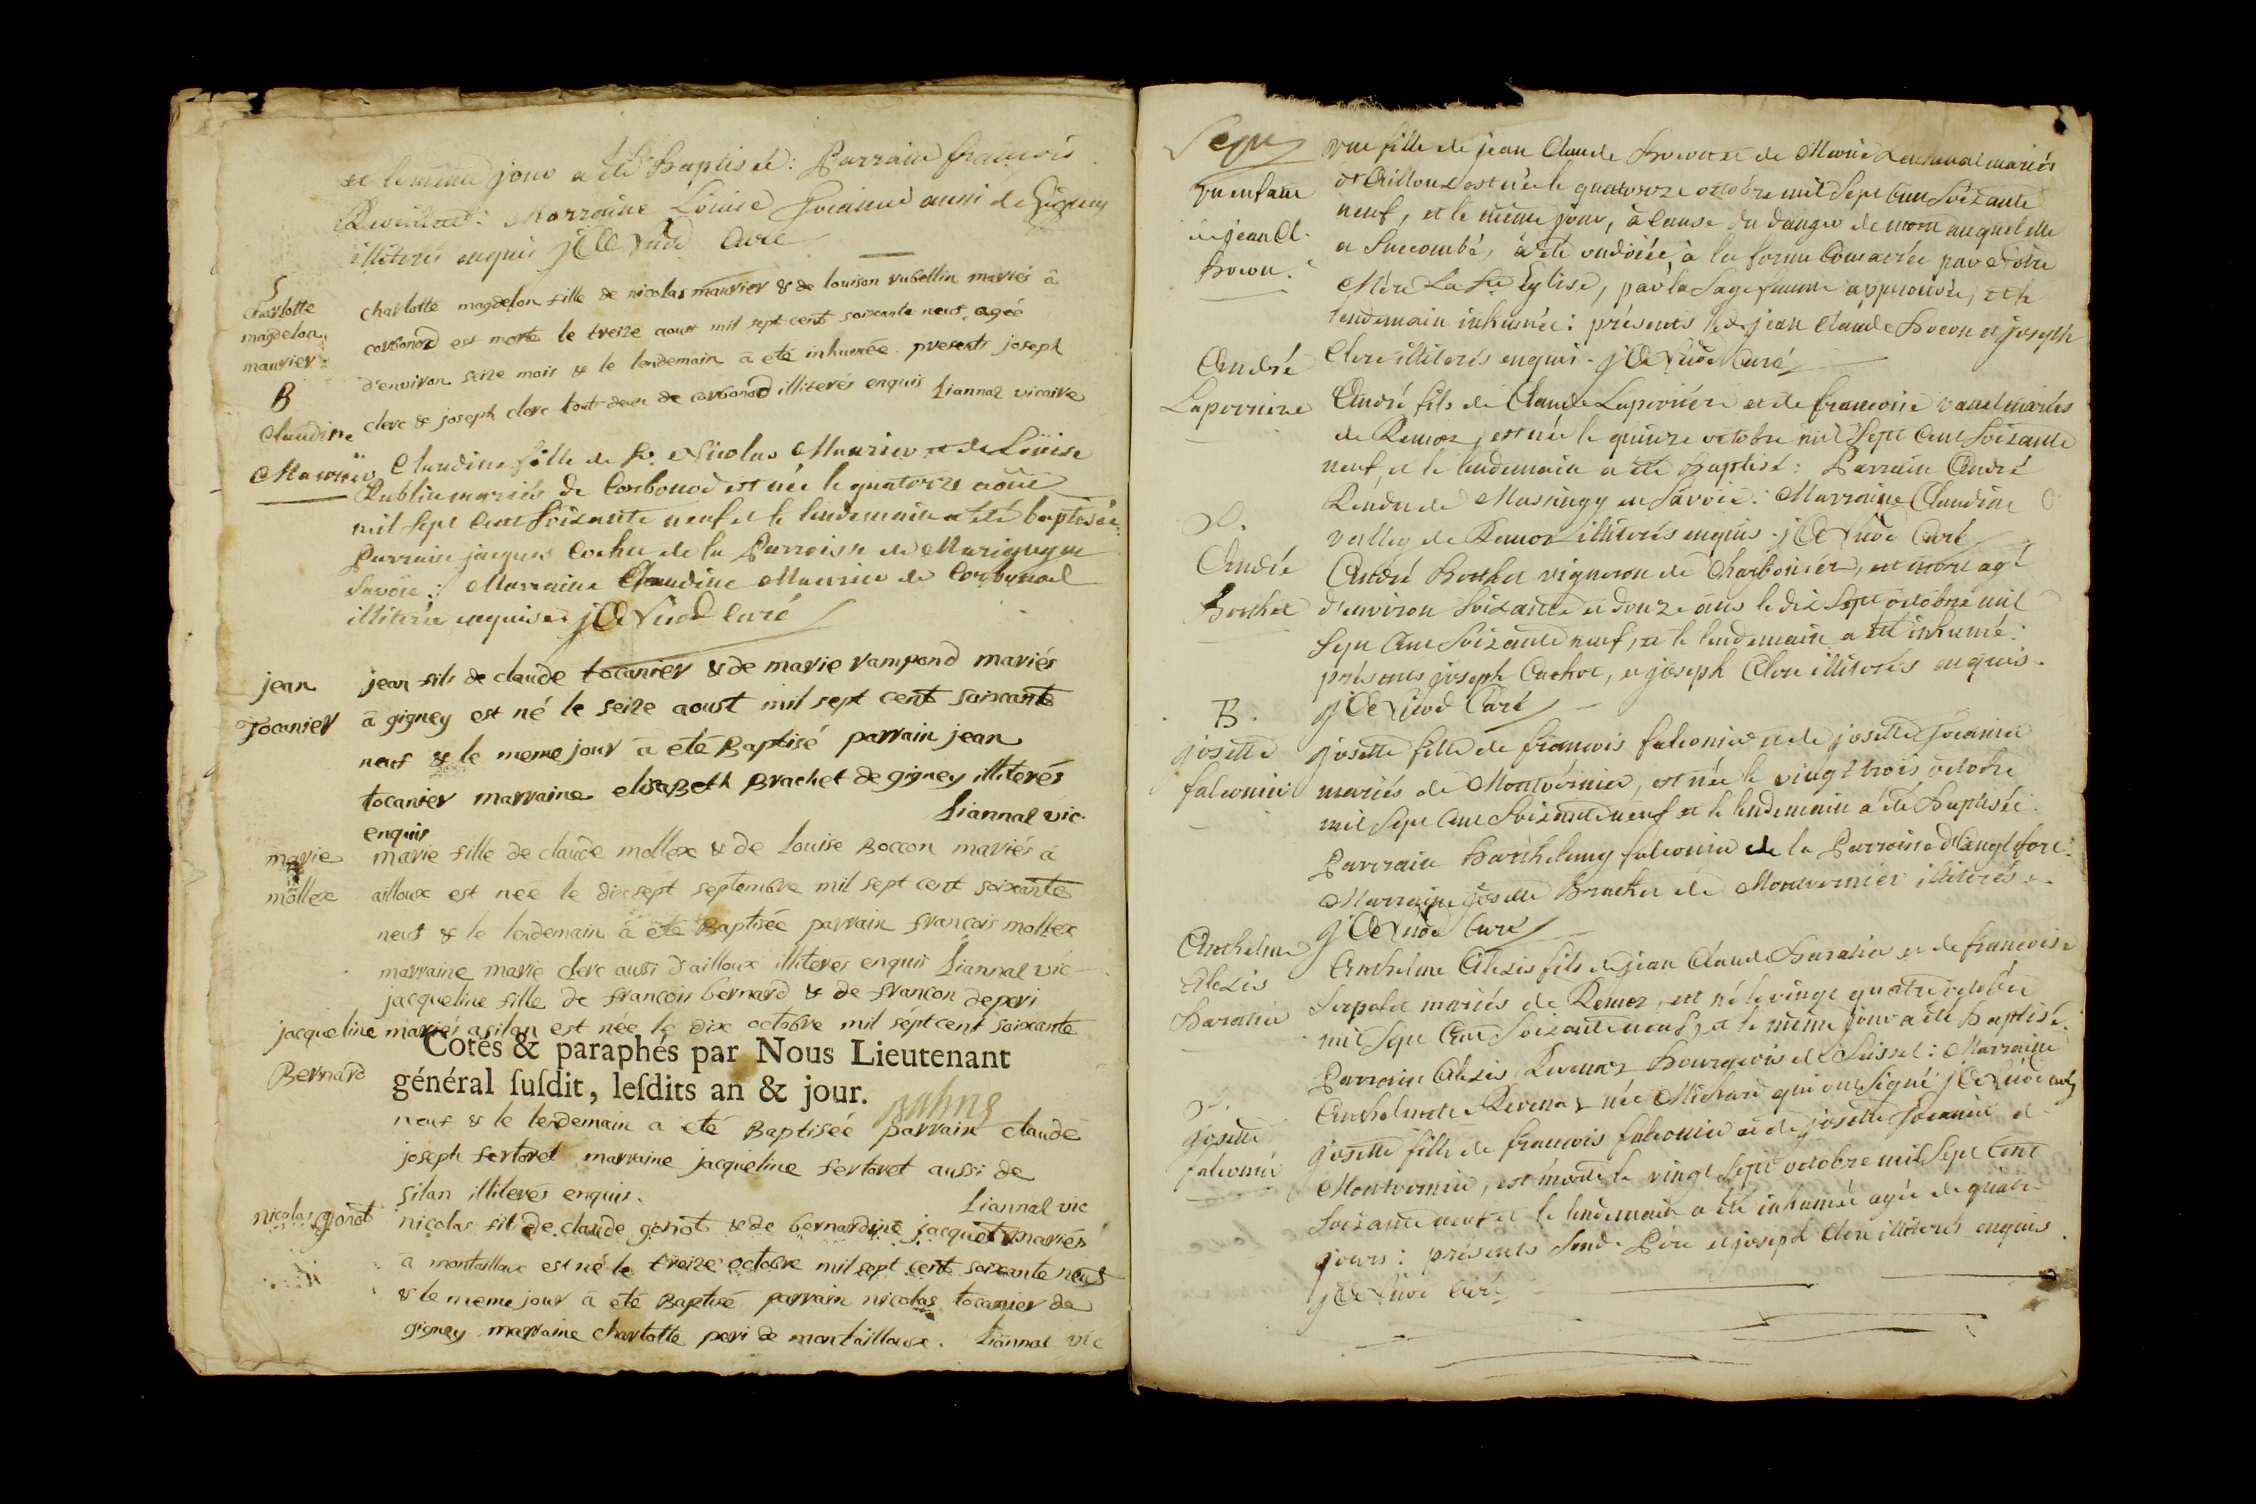 et le même jour a été Baptisé: Parrain françois
Marraine Louise aussi de Gigney
illiterés enquis Curé
S
Charlotte
magdelon
maurier
charlotte magdelon fille de nicolas maurier & de louison rubellin mariés à
corbonod est morte le treize aoust mil sept cent soixante neuf agéé
d'environ seize mois & le lendemain à eté inhumée. presents joseph
clerc & joseph clerc tout deux de corbonod illiterés enquis Liannaz vicaire
B
Claudine
Maurier
Claudine fille de Sr. Nicolas Maurier et de Loüise
Rublin mariés de Corbonod est née le quatorze août
mil sept Cent Soixante neuf et le lendemain a été baptisée:
Parrain jacques Cochet de la Parroisse de Marignygne
Savoïe: Marraine Claudine Maurier de Corbonod
illiterés enquis Curé
jean
Tocanier
jean fils de claude tocanier & de marie rampond mariés
à gigney est né le seize aoust mil sept cent soixante
neuf & le meme jour à eté Baptisé parrain jean
tocanier marraine elisaBeth Brachet de gigney illiterés
enquis Liannaz vic.
marie
mollex
marie fille de claude mollex & de Louise Boccon mariés à
ailloux est née le dixsept septembre mil sept cent soixante
neuf & le lendemain à eté Baptisée parrain françois mollex
marraine marie clerc aussi d'ailloux illiteres enquis Liannaz vic
jacqueline
Bernard
jacqueline fille de françois bernard & de françon deperi
mariés a silan est née le dix octobre mil sept cent soixante
Cotés & paraphés par Nous Lieutenant
général ſuſdit, leſdits an & jour.
neuf & le lendemain a eté Baptiséé parrain claude
joseph fertoret marraine jacqueline fertoret aussi de
silan illiterés enquis. Liannaz vic
nicolas gonot
nicolas fils de claude gonot & de bernardine jacquet mariés
à montailloux est né le treize octobre mil sept cent soixante neuf
& le meme jour à eté Baptisé parrain nicolas tocanier de
gigney marraine charlotte peri de montailloux. Liannaz vic
Sept
un enfant
de jean Cl.
Bocon.
une fille de jean Claude Bocon et de Marie mariés
d'Ailloux est née le quatorze octobre mil Sept Cent Soixante
neuf, et le même jour, à Cause du danger de mort auquel elle
a Succombé, a été ondoiée, à la forme Consacrée par Nôtre
Mère La Ste Eglise, par la Sagefemme approuvée, et le
lendemain inhumée: présents led. jean Claude Bocon et joseph
Clerc illiterés enquis. Curé
André
Laperriere
André fils de Claude Laperriére et de francoise mariés
de Remoz, est né le quinze octobre mil Sept Cent Soixante
neuf et le lendemain a été Baptisé: Parrain André
Rendu de Massingy en Savoie: Marraine Claudine
de Remoz illiterés enquis. Curé
S.
André
Berthet
André Berthet vigneron de Charbonier, est mort agé
d'environ Soixante et douze ans le dix Sept octobre mil
Sept Cent Soixante neuf, et le lendemain a été inhumé:
présents joseph Cachot, et joseph Clerc illiterés enquis.
Curé
B.
josette
falconier
josette fille de francois falconier et de josette
mariés de Montvernier, est née le vingt trois octobre
mil Sept Cent Soixante neuf et le lendemain a été Baptisée.
Parrain Barthelemy falconier de la Parroisse d'Anglefort:
Marraine josette Brachet de Montvernier illiterés
Curé
Anthelme
Alexis
Baratier
Anthelme Alexis fils de jean Claude Baratier et de francoise
mariés de Remoz, est né le vingt quatre octobre
mil Sept Cent Soixante neuf, et le même jour a été Baptisé.
Parrain Alexis Bourgeois de Seissel: Marraine
Anthelmette née Michard qui ont Signé
S.
josette
falconier
josette fille de francois falconier et de josette de
Montvernier, est morte le vingt Sept octobre mil Sept Cent
Soixante neuf et le lendemain a été inhumée agée de quatre
jours: présents Sond. Père et joseph Clerc illiterés enquis.
Curé